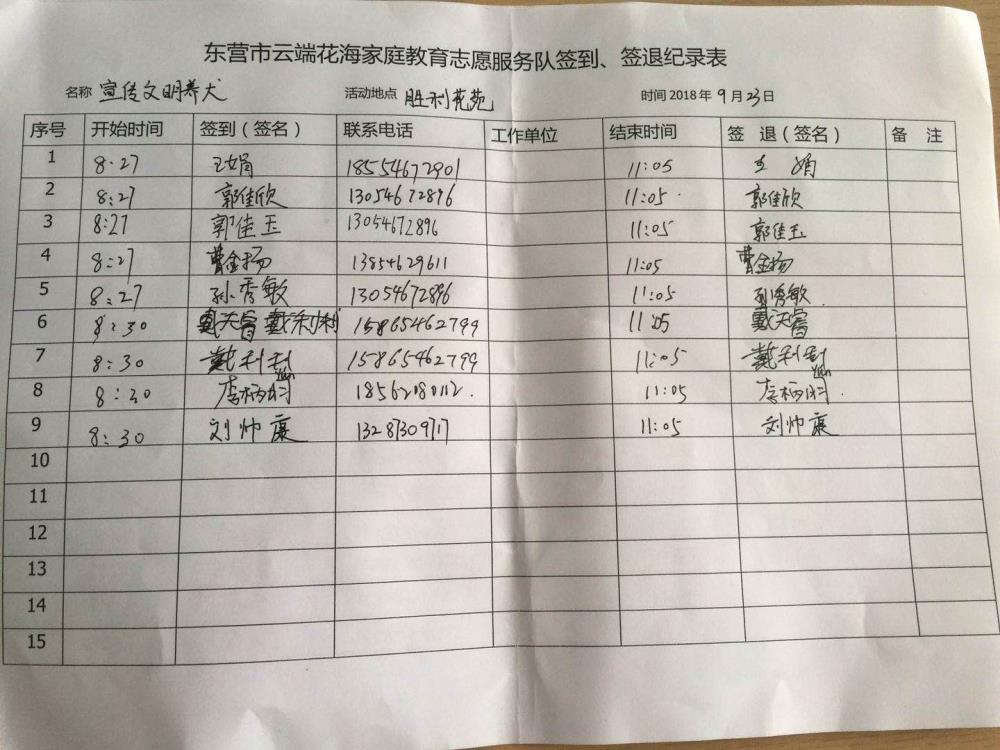 东营市云端花海家庭教育志愿服务队签到、签退纪录表
名称 宣传文明养犬 活动地点 胜利花苑 时间 2018 年 9 月 23 日
序号 开始时间 签到（签名） 联系电话 工作单位 结束时间 签 退（签名） 备 注
1 8:27 王娟 18554672901 11:05 王 娟
2 8:27 郭佳欣 13054672896 11:05 郭佳欣
3 8:27 郭佳玉 13054672896 11:05 郭佳玉
4 8:27 曹金扬 13854629611 11:05 曹金扬
5 8:27 孙秀敏 13054672896 11:05 孙秀敏
6 8:30 戴天睿 戴利利 15865462799 11:05 戴天睿
7 8:30 戴利利 15865462799 11:05 戴利利
8 8:30 李柄 18562180112. 11:05 李柄
9 8:30 刘帅康 13287309717 11:05 刘帅康
10
11
12
13
14
15